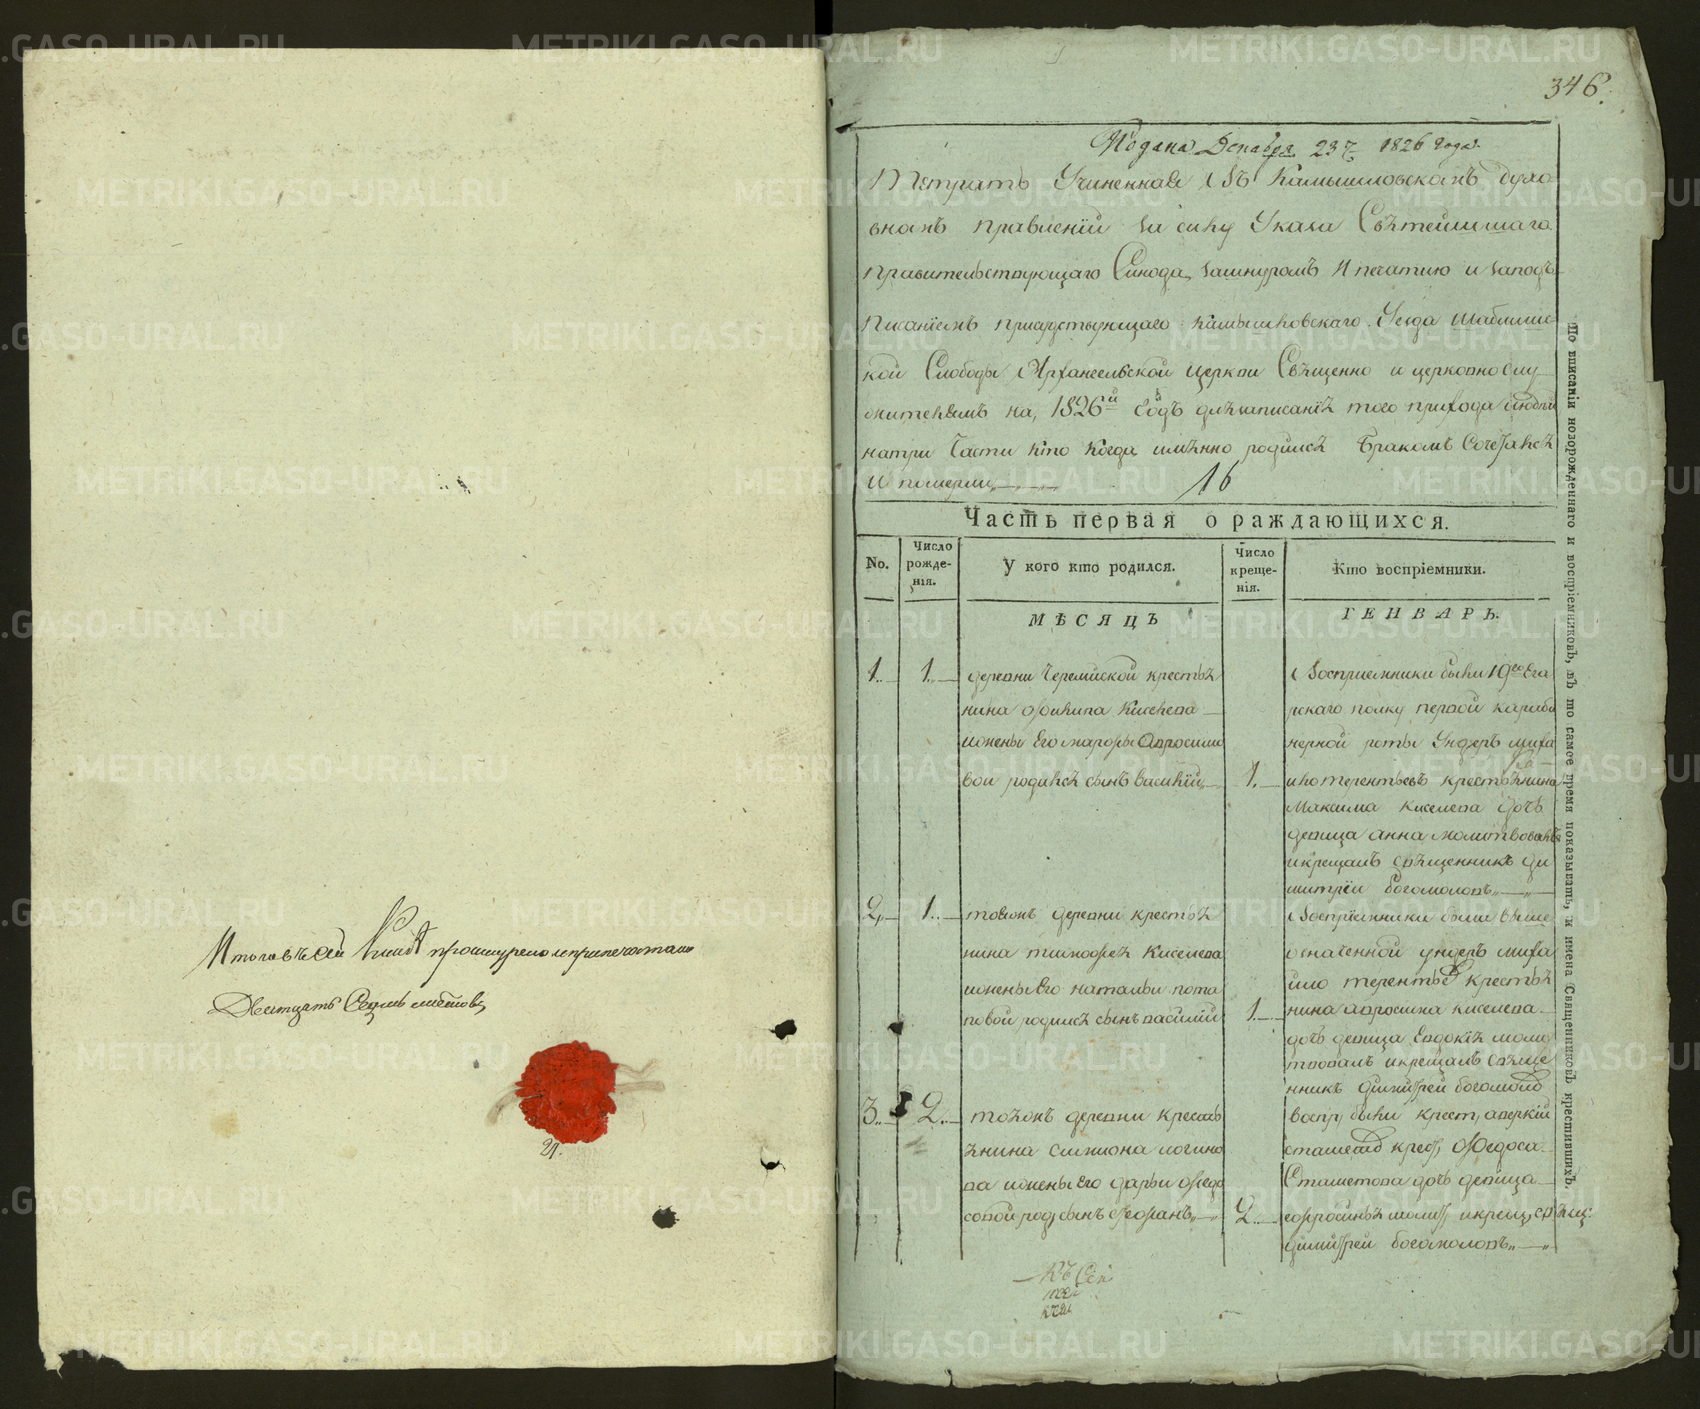 Итого въ сей книгѣ прошнурено и припечатано
Двatцать Седмь листовъ
27.
346.
Подана Декабря 23 1826 года.
Метрика Учиненная изъ Камышловскаго духо
внаго правленiй въ силу Указа Святейшаго
правительствующаго Синода, зашнуромъ и печатью и заподъ
писанiемъ присудствующаго Камышловскаго Уезда
кой Слободы Архангельской церкви Священно и церковно слу
жителямъ на 1826й Годъ для записанiя того прихода людей
натри Части кто когда имянно родился бракомъ Сочетался
и померли
16
Часть первая о раждающихся.
No.
Число рожденiя.
У кого кто родился.
Число крещенiя.
Кто воспрiемники.
МѢСЯЦЪ
ГЕНВАРЬ.
1.
1.
деревни Черемиской крестья
нина Филипа Киселева
ижены Его Марфы
вой родился сынъ Василiй
1.
Восприемники были 19го Еге
рскаго полку первой караби
нерной роты Ундеръ миха
ило терентьевъ крестьянина
Максима Киселева дочь
девица анна молитвовалъ
и крещалъ священникъ ди
митрей богомоловъ
2.
1.
тоежъ деревни крестья
нина тимофея Киселева
ижены Его натальи пота
повой родился сынъ василiй
1.
Воспрiемники были выше
означенной ундеръ миха
ило терентьевъ крестья
нина Киселева
дочь девица Евдокiя моли
твовалъ и крещалъ свяще
нникъ димитрей богомолов
3.
2.
тоежъ деревни кресть
янина симиона логино
ва ижены Его дарьи федо
совой род сынъ
2.
воспр были крест, аверкiй
крес, Федоса
дочь девица
молит и крещ свящ:
димитрей богомоловъ
По вписанiи новорожденнаго и воспрiемниковъ, въ то самое время показывать, и имена Священниковъ крестившихъ.
METRIKI.GASO-URAL.RU